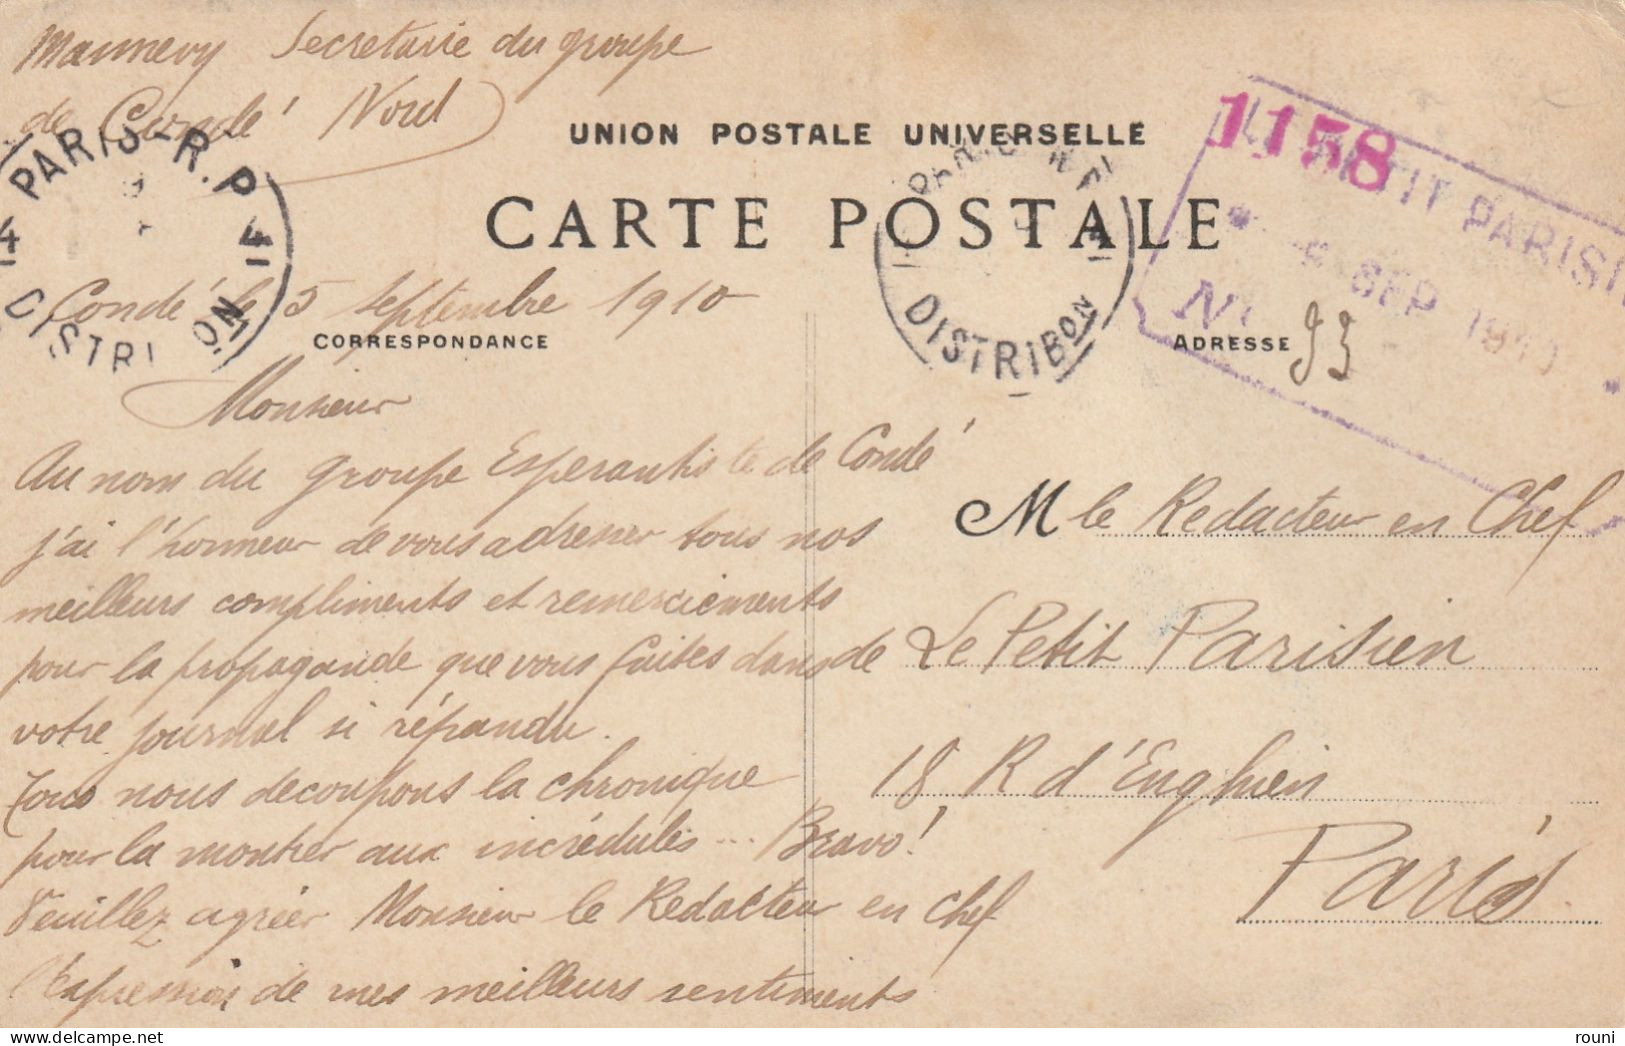 Mannevy Secretaire du groupe
de Condé Nord
UNION POSTALE UNIVERSELLE
CARTE POSTALE
PARIS-R.P
4 4
DISTRIBON
DISTRIBON
1158
LE PETIT PARISI
SEP 1910
N
93
Condé le 5 septembre 1910
CORRESPONDANCE
ADRESSE
Monsieur
Au nom du groupe Esperantiste de Condé
j'ai l'honneur de vous adresser tous nos
meilleurs compliments et remerciements
pour la propagande que vous faites dans
votre journal si répandu.
Tous nous decoupons la chronique
pour la montrer aux incrédules... Bravo!
Veuillez agréer Monsieur le Redacteur en chef
l'expression de mes meilleurs sentiments
M le Redacteur en Chef
de Le Petit Parisien
18 R d'Enghien
Paris
delcampe.net
rouni